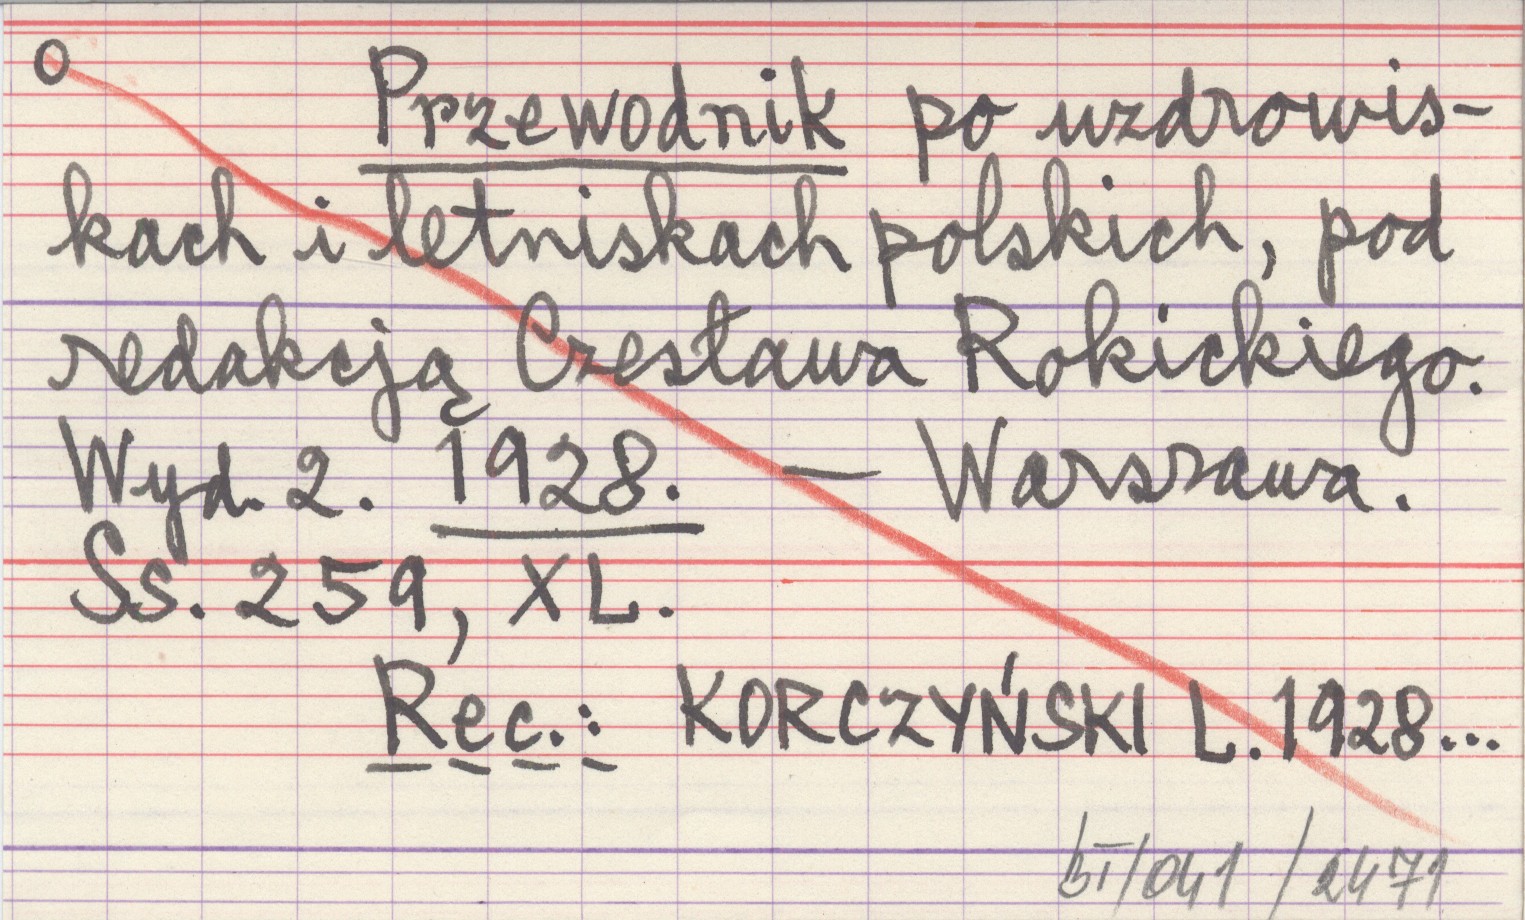 O Przewodnik po uzdrowis-
kach i letniskach polskich, pod
redakcją Czesława Rokickiego.
Wyd. 2. 1928. — Warszawa.
Ss. 259, XL.
Rec.: KORCZYŃSKI L. 1928...
BI/041/2471